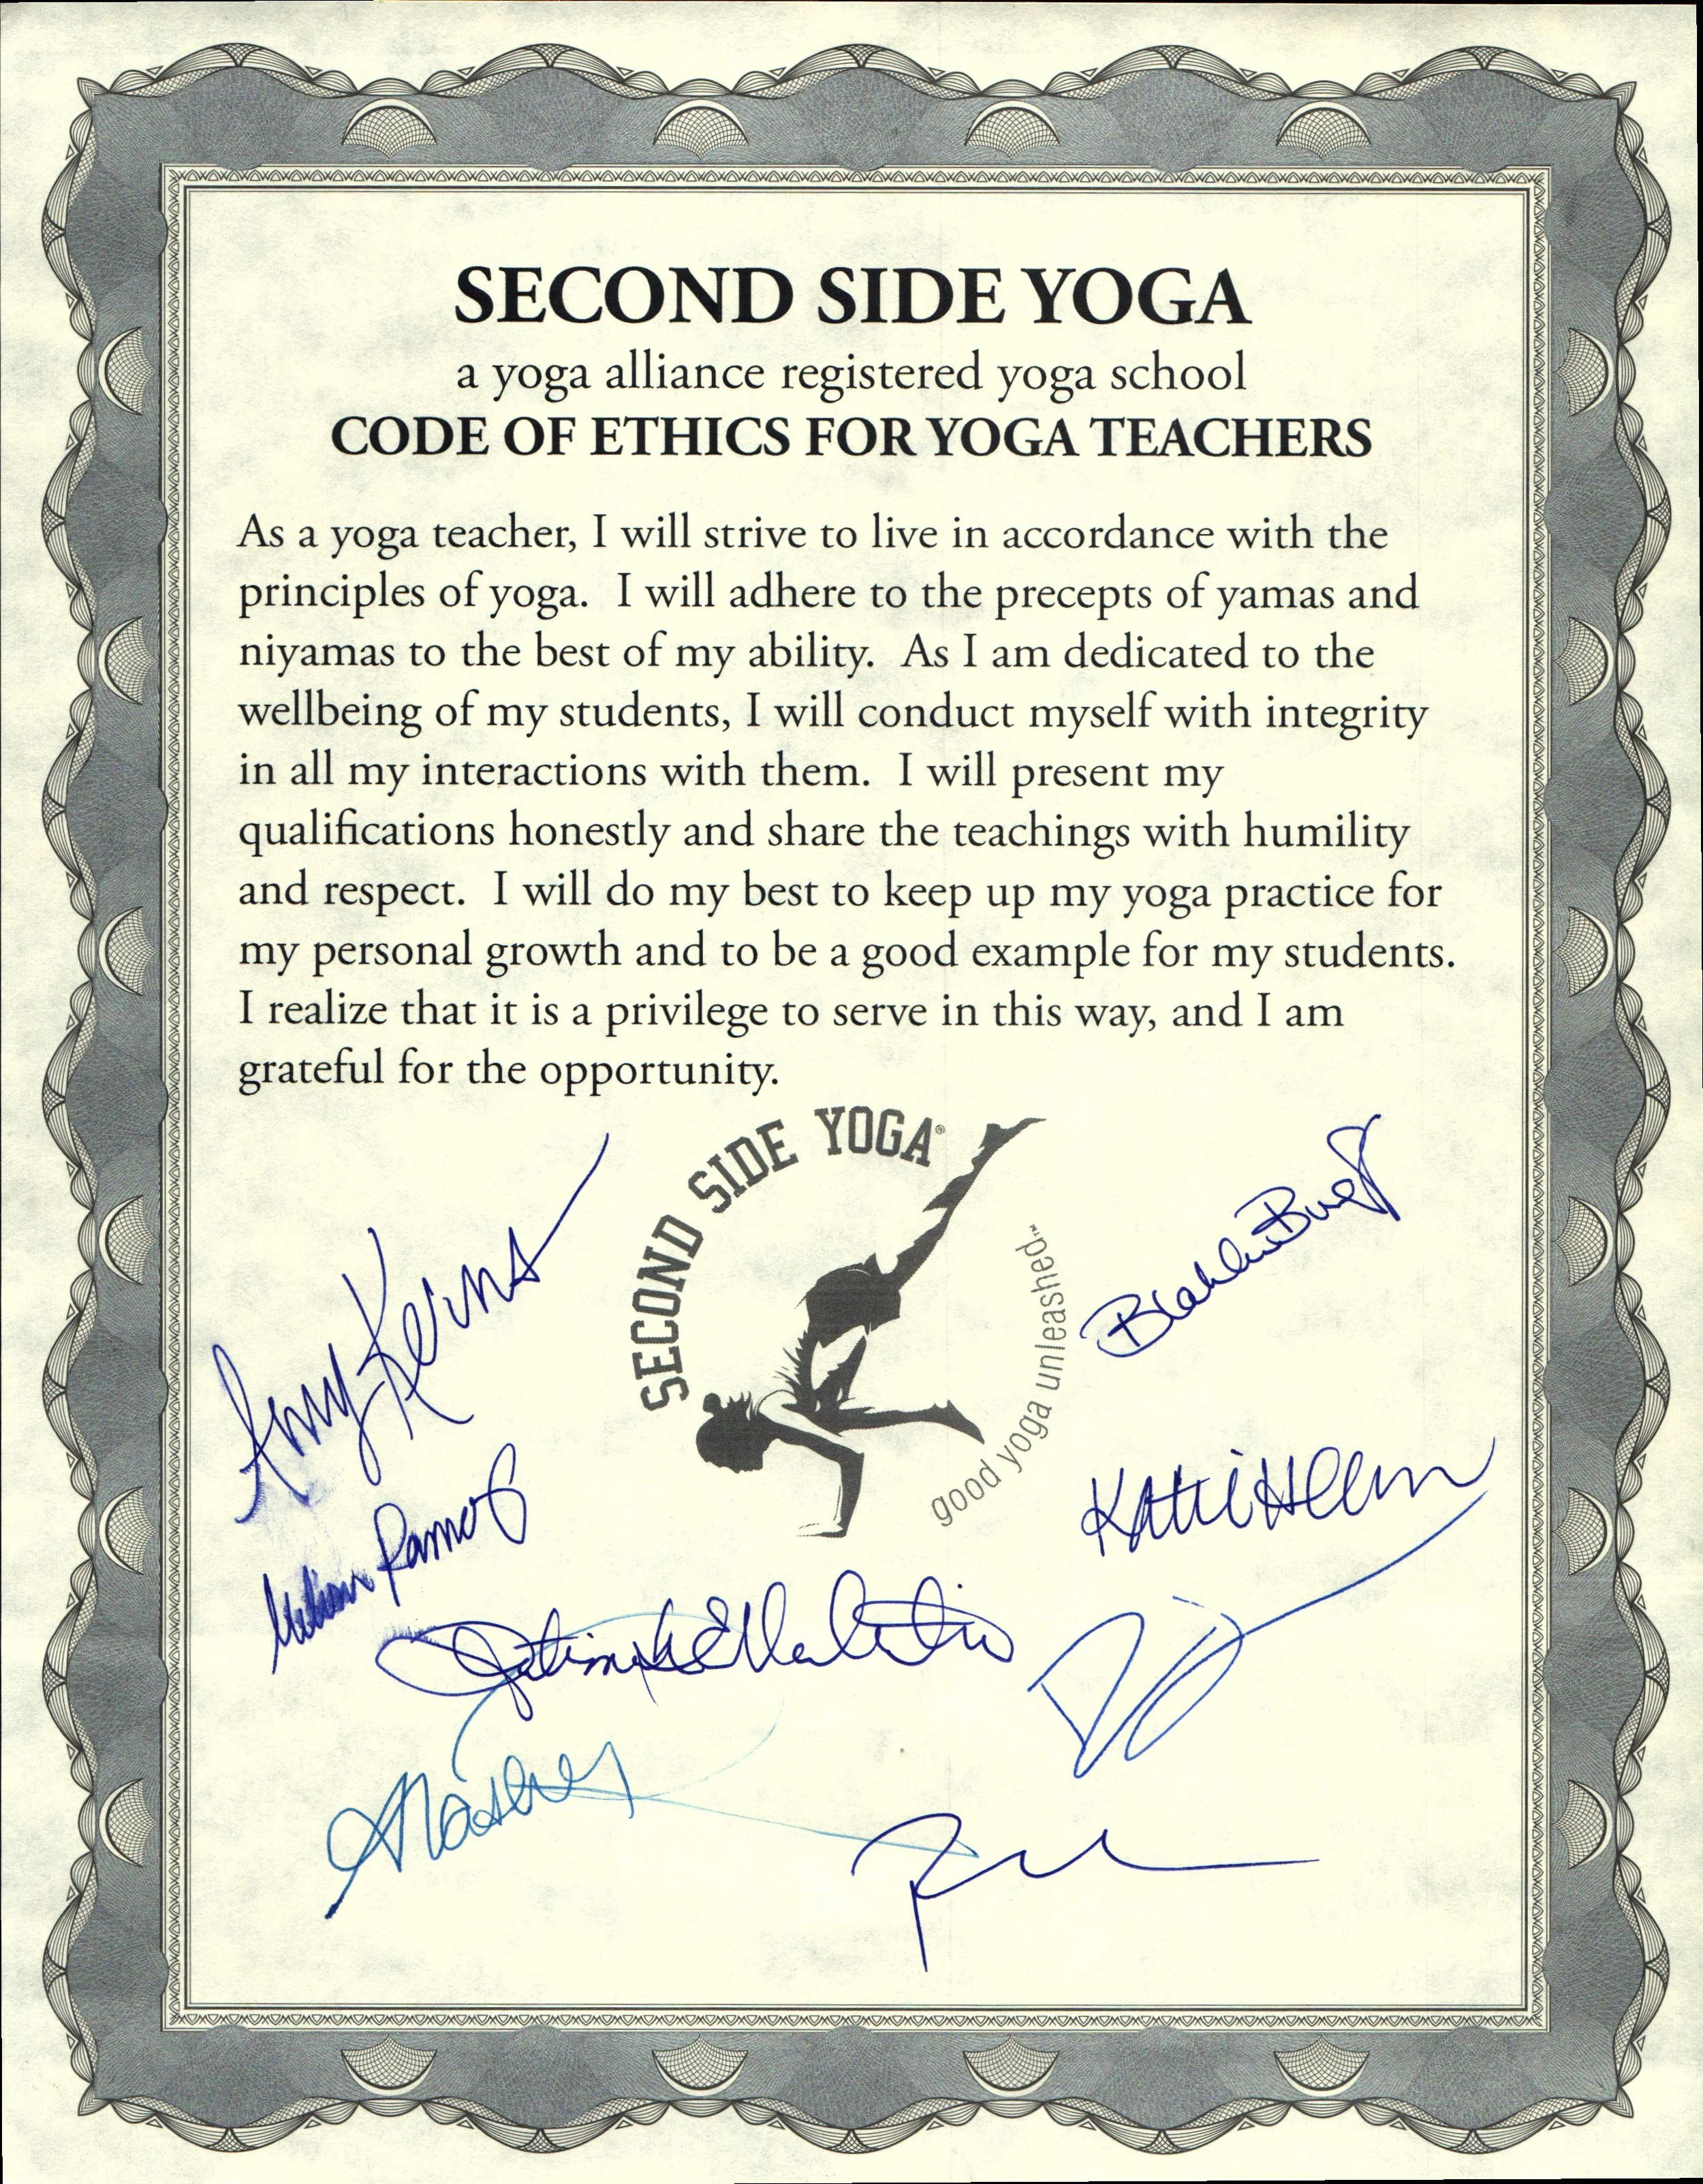 SECOND SIDE YOGA
a yoga alliance registered yoga school
CODE OF ETHICS FOR YOGA TEACHERS
As a yoga teacher, I will strive to live in accordance with the
principles of yoga.  I will adhere to the precepts of yamas and
niyamas to the best of my ability.  As I am dedicated to the
wellbeing of my students, I will conduct myself with integrity
in all my interactions with them.  I will present my
qualifications honestly and share the teachings with humility
and respect.  I will do my best to keep up my yoga practice for
my personal growth and to be a good example for my students.
I realize that it is a privilege to serve in this way, and I am
grateful for the opportunity.
SECOND SIDE YOGA®
good yoga unleashed™
Amy Kerns
Ramos